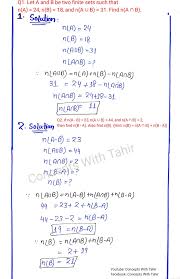 Q1. Let A and B be two finite sets such that
n(A) = 24, n(B) = 18, and n(A ∪ B) = 31. Find n(A ∩ B).
1: Solution:
n(A) = 24
n(B) = 18
n(A∪B) = 31
n(A∩B) = ?
∵ n(A∪B) = n(A) + n(B) - n(A∩B)
31 = 24 + 18 - n(A∩B)
n(A∩B) = 24 + 18 - 31
n(A∩B) = 11
2: Solution
n(A-B) = 23
n(A∪B) = 44
n(A∩B) = 2
n(B-A) = ?
n(B) = ?
∵ n(A∪B) = n(A-B) + n(A∩B) + n(B-A)
44 = 23 + 2 + n(B-A)
44 - 23 - 2 = n(B-A)
19 = n(B-A)
∵ n(B) = n(A∩B) + n(B-A)
= 2 + 19
n(B) = 21
Concepts With Tahir
Youtube: Concepts With Tahir
Facebook: Concepts With Tahir